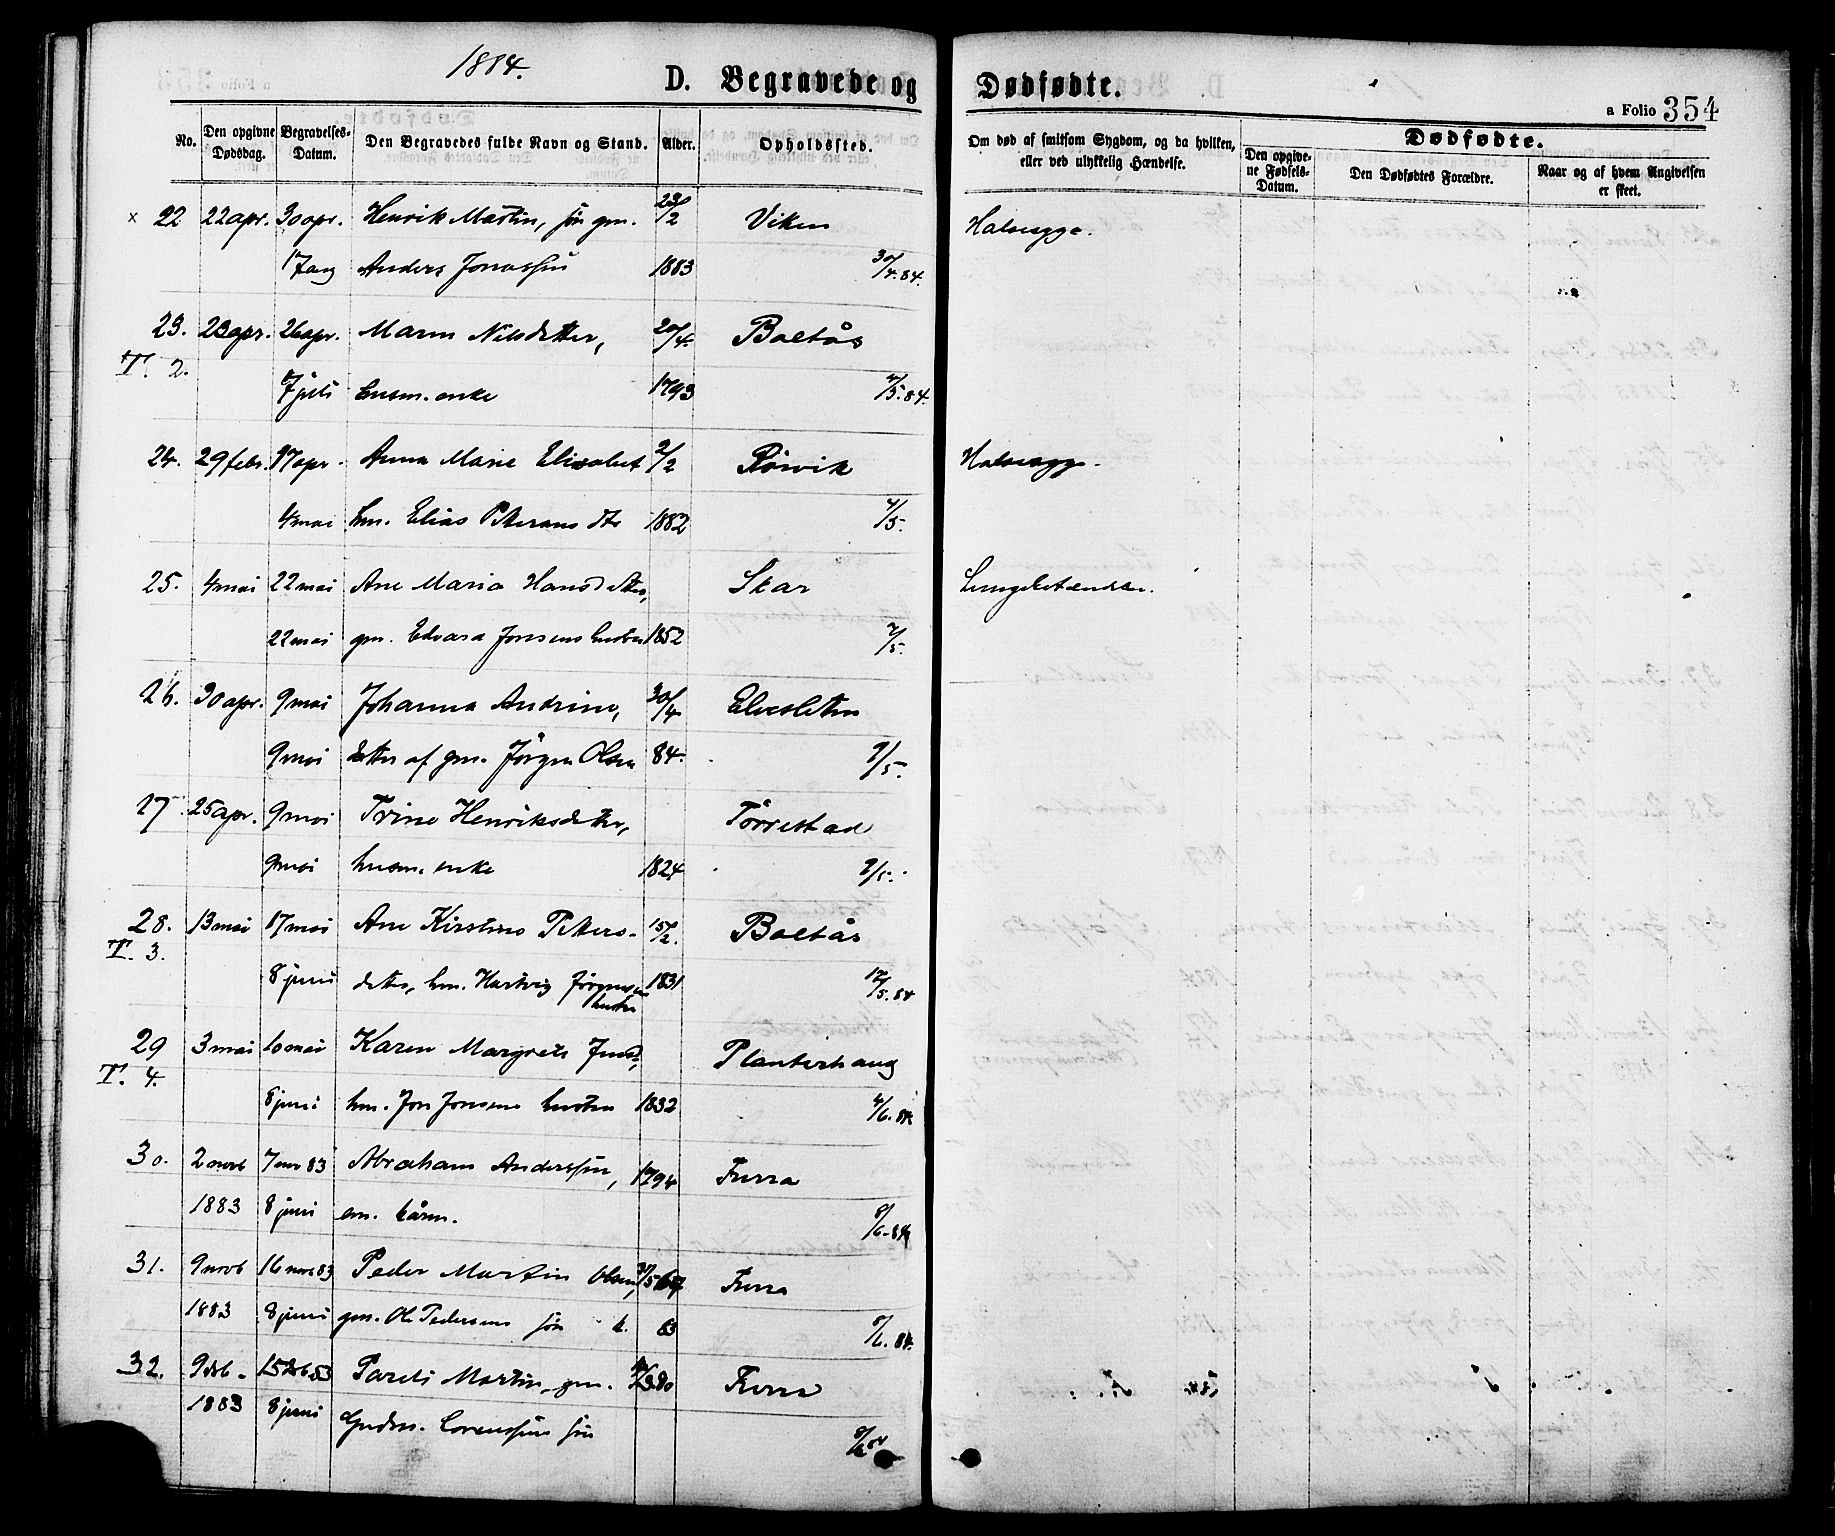 1884.
D. Begravede og Dødfødte.
a Folio 354
No. Den opgivne Dødsdag. Begravelses-Datum. Den Begravedes fulde Navn og Stand. Alder. Opholdssted. Om død af smitsom Sygdom, og da hvilken, eller ved ulykkelig Hændelse. Dødfødte.
Den opgivne Fødsels-Datum. Den Dødfødtes Forældre. Naar og af hvem Angivelsen er skeet.
x 22 22 apr. 30 apr. Henrik Martin, søn gm. 22/2 Viken Halssyge.
17 aug Anders Jonassøn 1883 30/4.84.
23. 23 apr. 26 apr. Maren Nilsdatter, 20/4 Boltås
T. 2.
7 juli husm. enke 1793 /5.84.
24. 29 febr. 17 apr. Anna Marie Elisabet 2/2 Rörvik Halssyge.
4 mai hm. Elias Petersens dtr 1882 4/5.
25. 4 mai 22 mai Ane Maria Hansdatter, Skar Lungebetændelse.
22 mai gm. Edvard Jonsens hustru 1852 /5.
26. 30 apr. 9 mai Johanna Andrine, 30/4 Elvesletten
9 mai datter af gm. Jörgen Olsen 84. 9/5.
27 25 apr. 9 mai Trine Henriksdatter, Törrestad
9 mai husm. enke 1824 9/5.
28. 13 mai 17 mai Ane Kirstine Peters- 15/2. Boltås
T. 3.
8 juni datter, hm. Hartvig Jörgensen hustru 1831 17/5.84
29 3 mai 10 mai Karen Margrete Jensd, Planterhaug
T. 4.
8 juni hm. Jon Jonsens hustru 1832 /6.84
30. 2 novb 7 nov 83 Abraham Anderssøn, 1794 Furra
1883 8 juni em. kårm. 8/6.84
31. 9 novb 16 nov 83 Peder Martin Olsen, Furra
1883 8 juni gm. Ole Pedersens søn 83 8/6.84.
32. 9 deb. 15 deb 83 Pareli Martin, gm. Furra
1883 8 juni Gudm. Lorenssøns søn 8/6 84